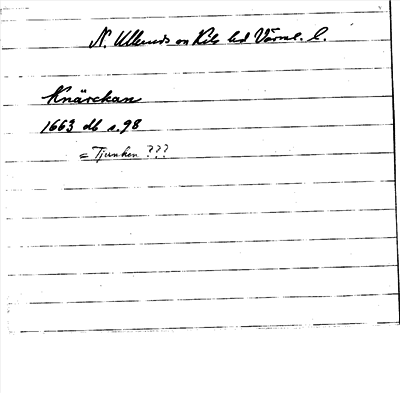 N. Ullerud sn Kils hd Värml. l.
Knärckan
1663 db s. 98
= Tjunken ???